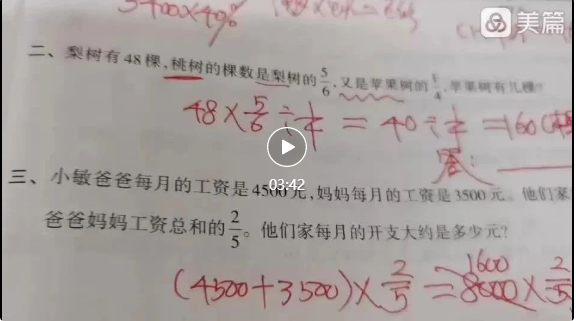 5400×40%
美篇
二、梨树有48棵,桃树的棵数是梨树的5/6,又是苹果树的1/4,苹果树有几棵?
48×5/6÷1/4=40÷1/4=160(棵
答:
03:42
三、小敏爸爸每月的工资是4500元,妈妈每月的工资是3500元。他们家
爸爸妈妈工资总和的2/5。他们家每月的开支大约是多少元?
1600
(4500+3500)×2/5=8000×2/5